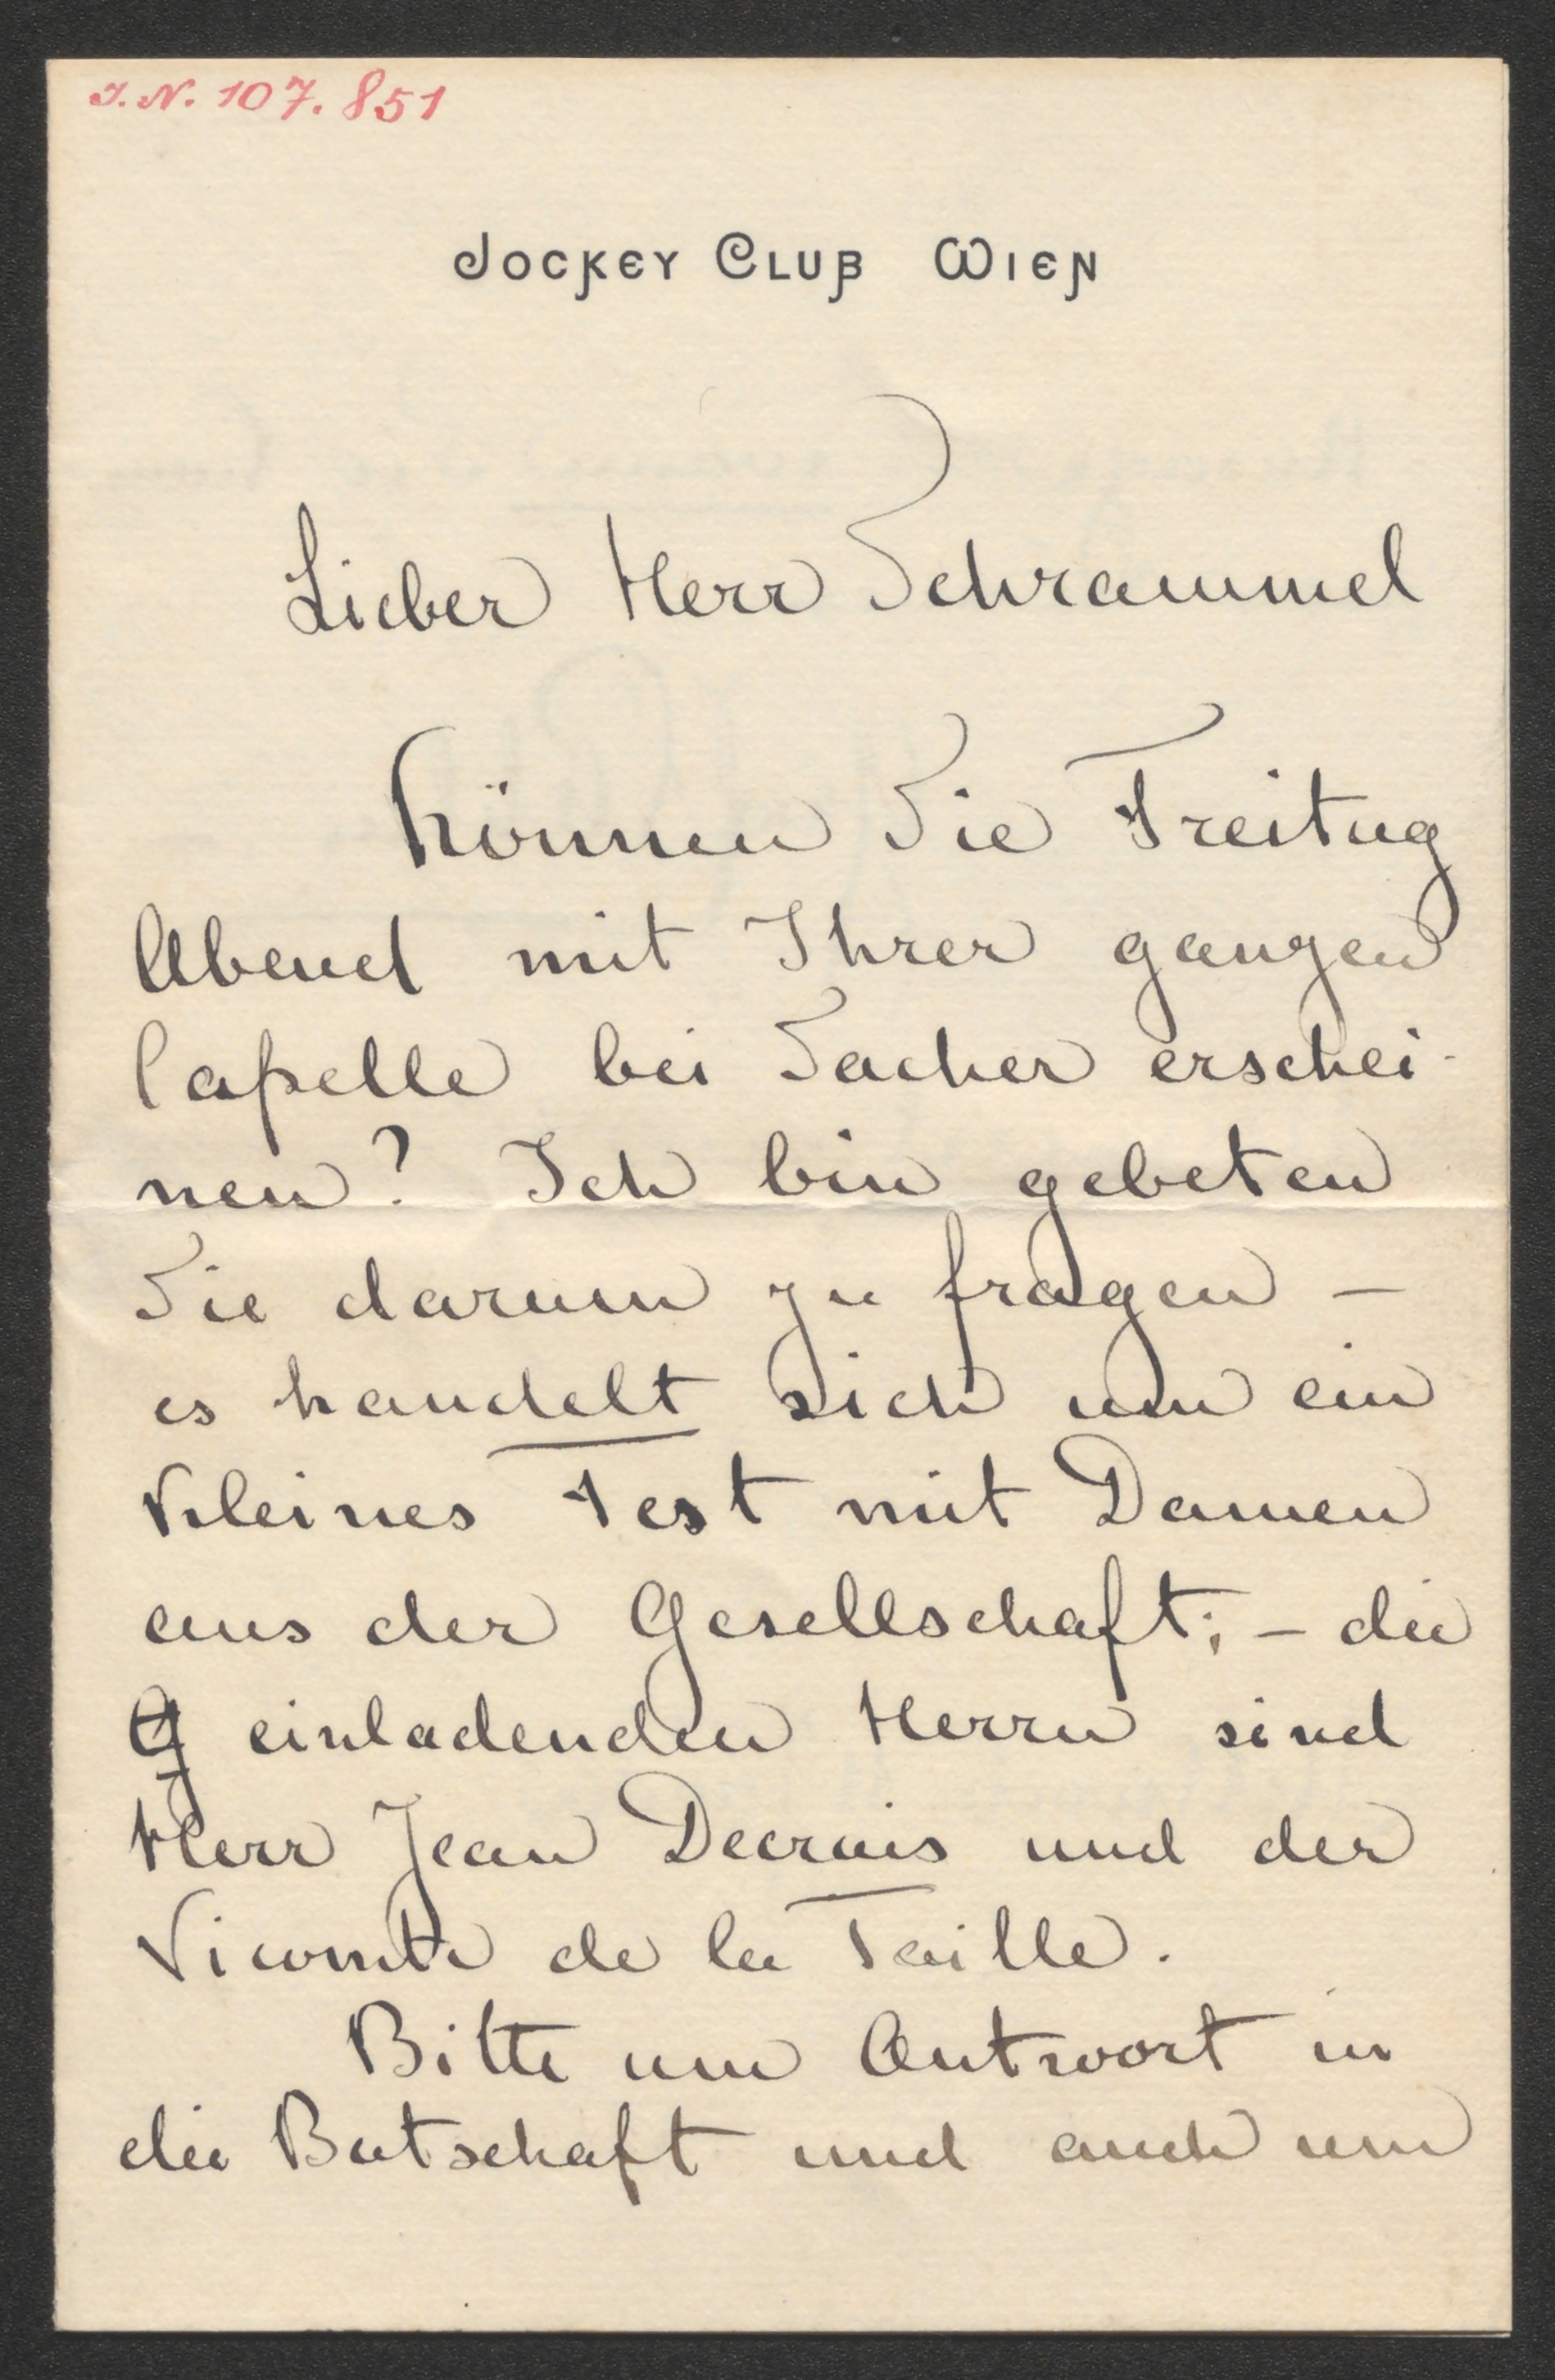 I. N. 107.851
JOCKEY CLUB WIEN
Lieber Herr Schrammel
Können Sie Freitag
Abend mit Ihrer ganzen
Capelle bei Sacher erschei-
nen? Ich bin gebeten
Sie darum zu fragen –
es handelt sich um ein
kleines Fest mit Damen
aus der Gesellschaft; – die
einladenden Herrn sind
Herr Jean Decrais und der
Vicomte de la Taille.
Bitte um Antwort in
die Botschaft und auch um